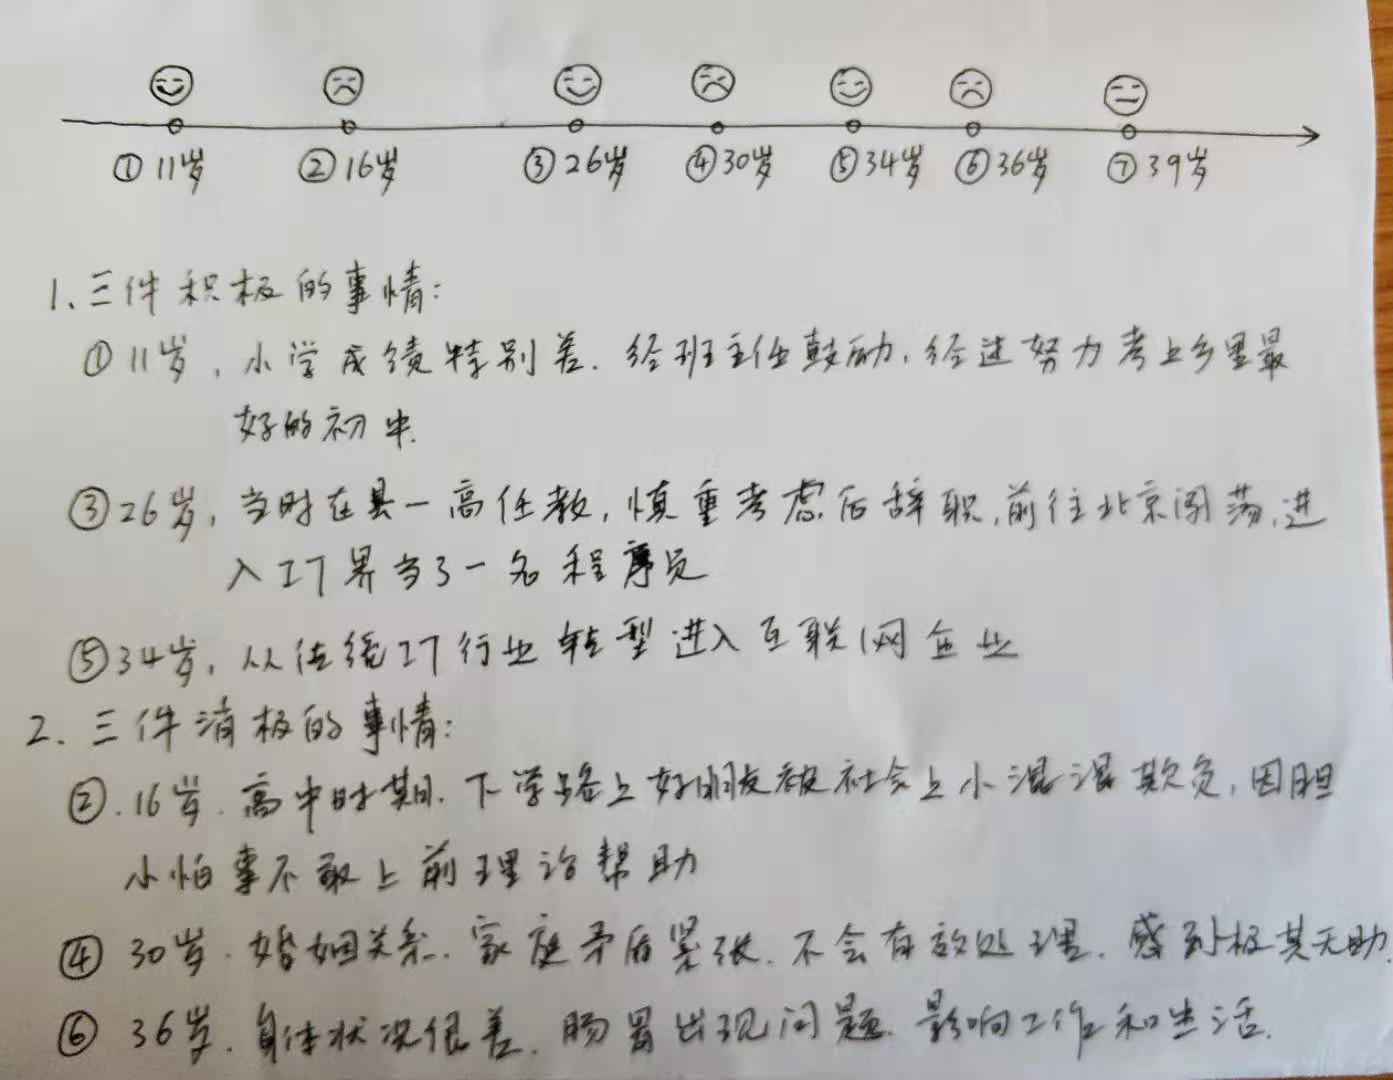 ①11岁 ②16岁 ③26岁 ④30岁 ⑤34岁 ⑥36岁 ⑦39岁
1、三件积极的事情:
①11岁,小学成绩特别差.经班主任鼓励,经过努力考上乡里最
好的初中.
③26岁,当时在县一高任教,慎重考虑后辞职,前往北京闯荡,进
入IT界当了一名程序员
⑤34岁,从传统IT行业转型进入互联网企业
2、三件消极的事情:
②.16岁.高中时期.下学路上好朋友被社会上小混混欺负,因胆
小怕事不敢上前理论帮助
④30岁.婚姻关系.家庭矛盾紧张.不会有效处理.感到极其无助.
⑥36岁.身体状况很差.肠胃出现问题.影响工作和生活.